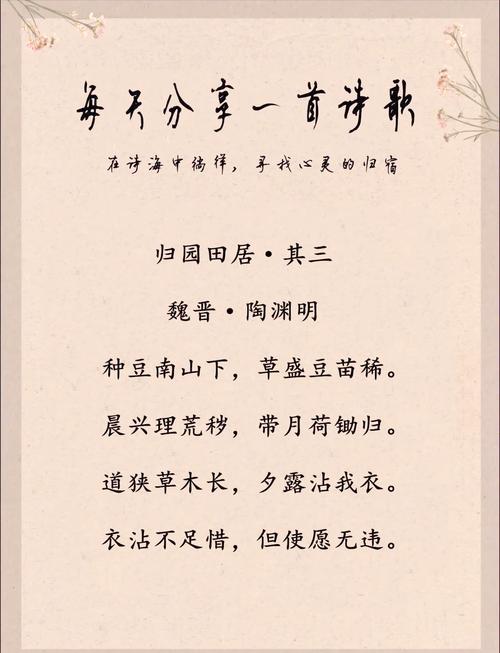 每天分享一首诗歌
在诗海中徜徉，寻找心灵的归宿
归园田居·其三
魏晋·陶渊明
种豆南山下，草盛豆苗稀。
晨兴理荒秽，带月荷锄归。
道狭草木长，夕露沾我衣。
衣沾不足惜，但使愿无违。